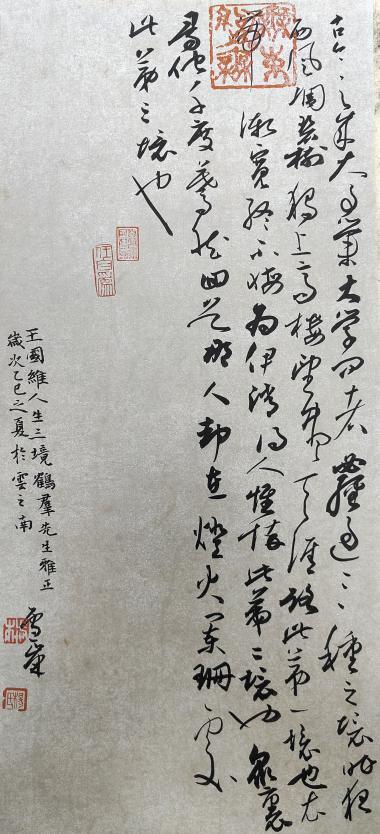 古今之成大事業大学问者必經過三種之境昨夜
西风凋碧樹獨上高樓望盡天涯路此第一境也衣
帶漸寬終不悔為伊消得人憔悴此第二境也眾裏
尋他千百度驀然回首那人却在燈火闌珊處
此第三境也
王國維人生三境鶴羣先生雅正
歲次乙巳之夏於雲之南
雪